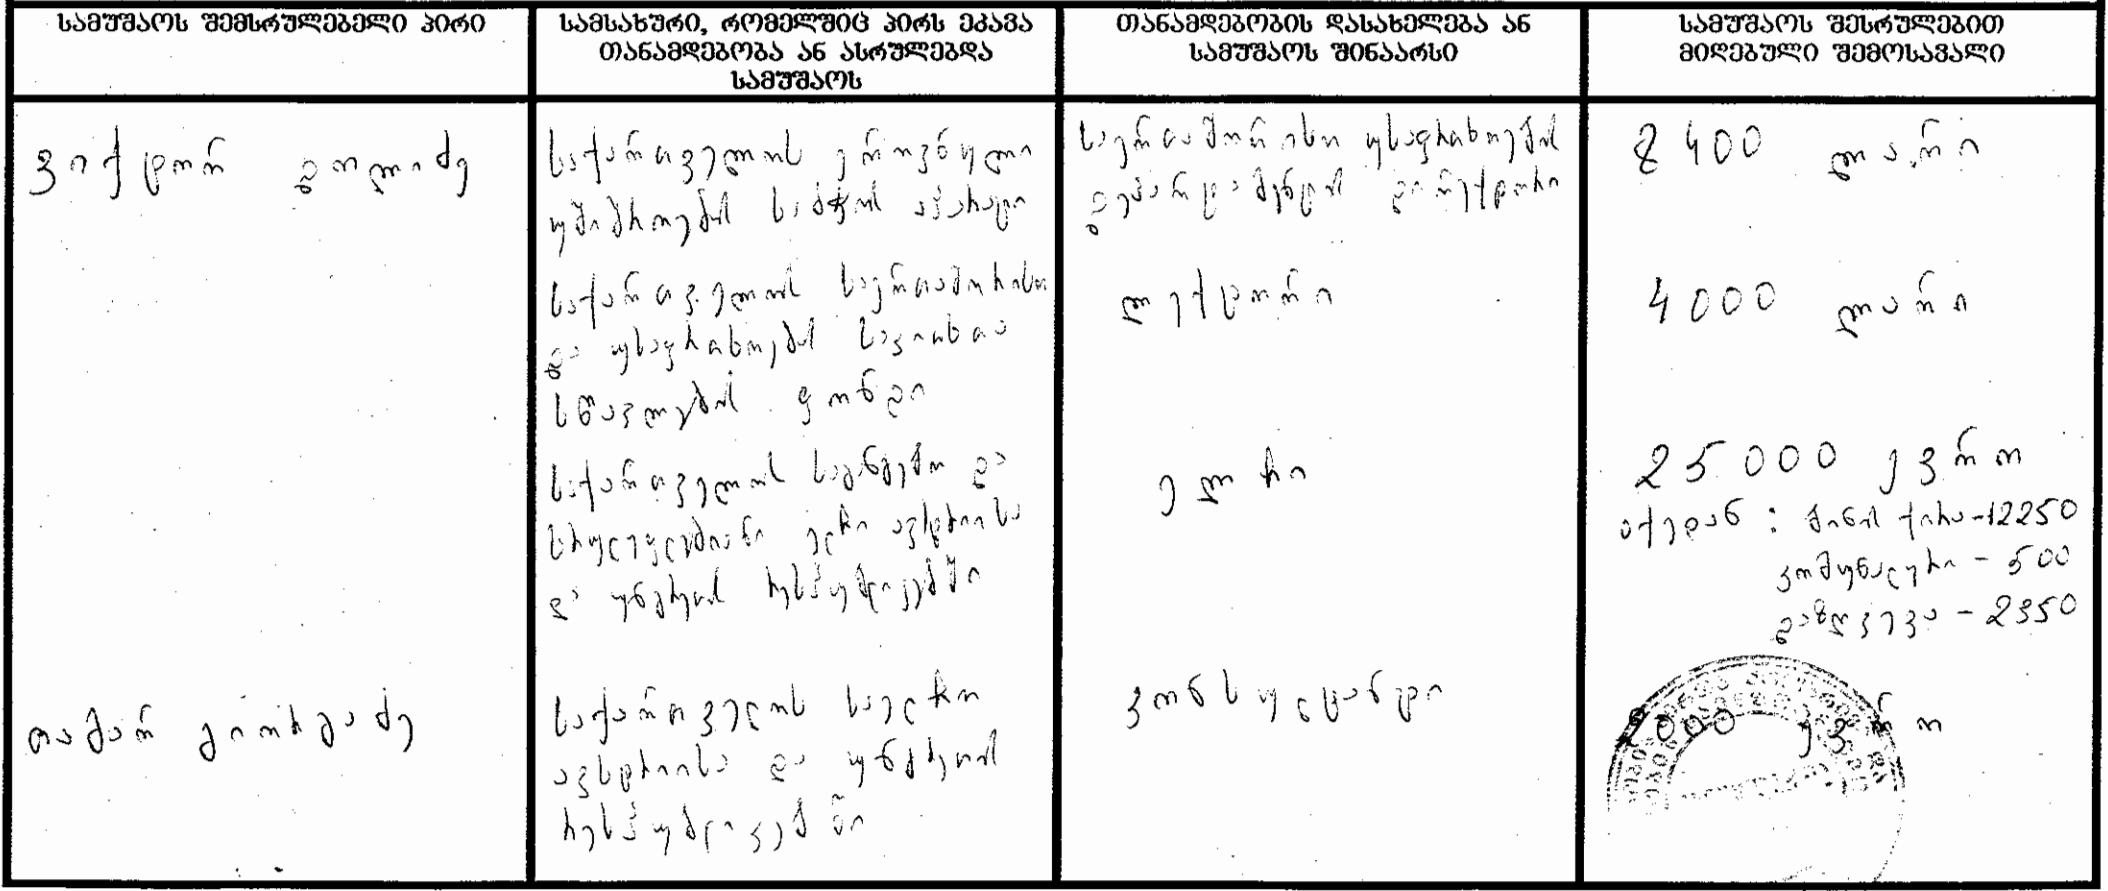 სამუშაოს შემსრულებელი პირი
სამსახური, რომელშიც პირს ეკავა
თანამდებობა ან ასრულებდა
სამუშაოს
თანამდებობის დასახელება ან
სამუშაოს შინაარსი
სამუშაოს შესრულებით
მიღებული შემოსავალი
ვიქტორ დოლიძე
საქართველოს ეროვნული
უშიშროების საბჭოს აპარატი
საერთაშორისო უსაფრთხოების
დეპარტამენტის დირექტორი
8400 ლარი
საქართველოს საერთაშორისო
და უსაფრთხოების საკითხთა
სწავლების ფონდი
ლექტორი
4000 ლარი
საქართველოს საგანგებო და
სრულუფლებიანი ელჩი ავსტრიისა
და უნგრეთის რესპუბლიკებში
ელჩი
25000 ევრო
აქედან : ბინის ქირა-12250
კომუნალური - 500
დაზღვევა - 2350
თამარ გიორგაძე
საქართველოს საელჩო
ავსტრიისა და უნგრეთის
რესპუბლიკებში
კონსულტანტი
2000 ევრო